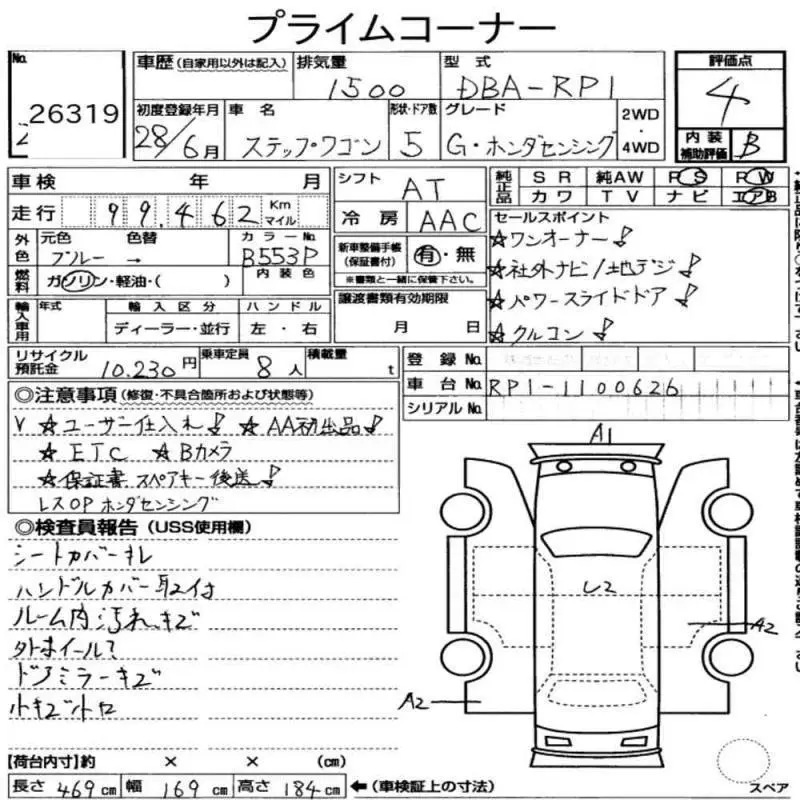 プライムコーナー
No. 26319
車歴 (自家用以外は記入)
排気量 1500
型式 DBA-RP1
評価点 4
初度登録年月 28/6月
車名 ステップワゴン
形状・ドア数 5
グレード G・ホンダセンシング
2WD・4WD
内装補助評価 B
車検 年 月
シフト AT
純正品 SR 純AW PS PW
カワ TV ナビ エアB
走行 99,462 Km マイル
冷房 AAC
セールスポイント
☆ワンオーナー!
☆社外ナビ/地デジ!
☆パワースライドドア!
☆クルコン!
外色 元色 ブルー 色替 → カラーNo. B553P
内装色
新車整備手帳(保証書付) 有・無
※書類と一緒に保管下さい。
燃料 ガソリン・軽油・( )
譲渡書類有効期限
月 日
輸入車用 年式 輸入区分 ハンドル
ディーラー・並行 左・右
リサイクル預託金 10,230円
乗車定員 8人
積載量 t
登録No.
車台No. RP1-1100626
シリアルNo.
◎注意事項 (修復・不具合箇所および状態等)
☆ユーザー仕入れ! ☆AA初出品!
☆ETC ☆Bカメラ
☆保証書 スペアキー後送!
レスOP ホンダセンシング
◎検査員報告 (USS使用欄)
シートカバーキレ
ハンドルカバー取付
ルーム内汚れ、キズ
外ホイール
ドアミラーキズ
小キズ小凹
A1
A2
A2
【荷台内寸】約 × × (cm)
長さ 469cm 幅 169cm 高さ 184cm ←(車検証上の寸法)
スペア